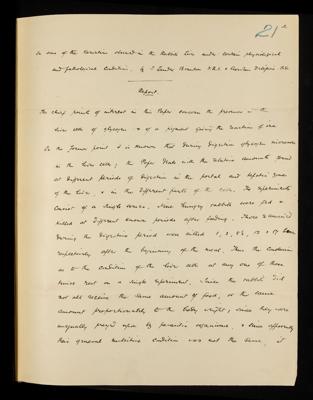 21a
On some of the Variations observed in the Rabbit's Liver under certain physiological
and pathological Conditions. by T Lauder Brunton F.R.S. & Sheridan Delépine M.B.
Report.
The chief points of interest in this Paper concern the presence in the
liver cells of glycogen & of a pigment giving the reactions of iron
On the former point it is known that during digestion glycogen increases
in the liver cells; the Paper deals with the relative amounts found
at different periods of digestion in the portal and hepatic zones
of the liver, & in the different parts of the cells. The experiments
consist of a single series. Nine hungry rabbits were fed &
killed at different known periods after feeding. Those examined
during the digestive period were killed
respectively after the beginning of the meal. Thus the conclusions
as to the condition of the liver cells at any one of these
times rest on a single experiment. Since the rabbits did
not all receive the same amount of food, or the same
amount proportionately to the body weight; since they were
unequally preyed upon by parasitic organisms, & since apparently
their general nutritive condition was not the same, it